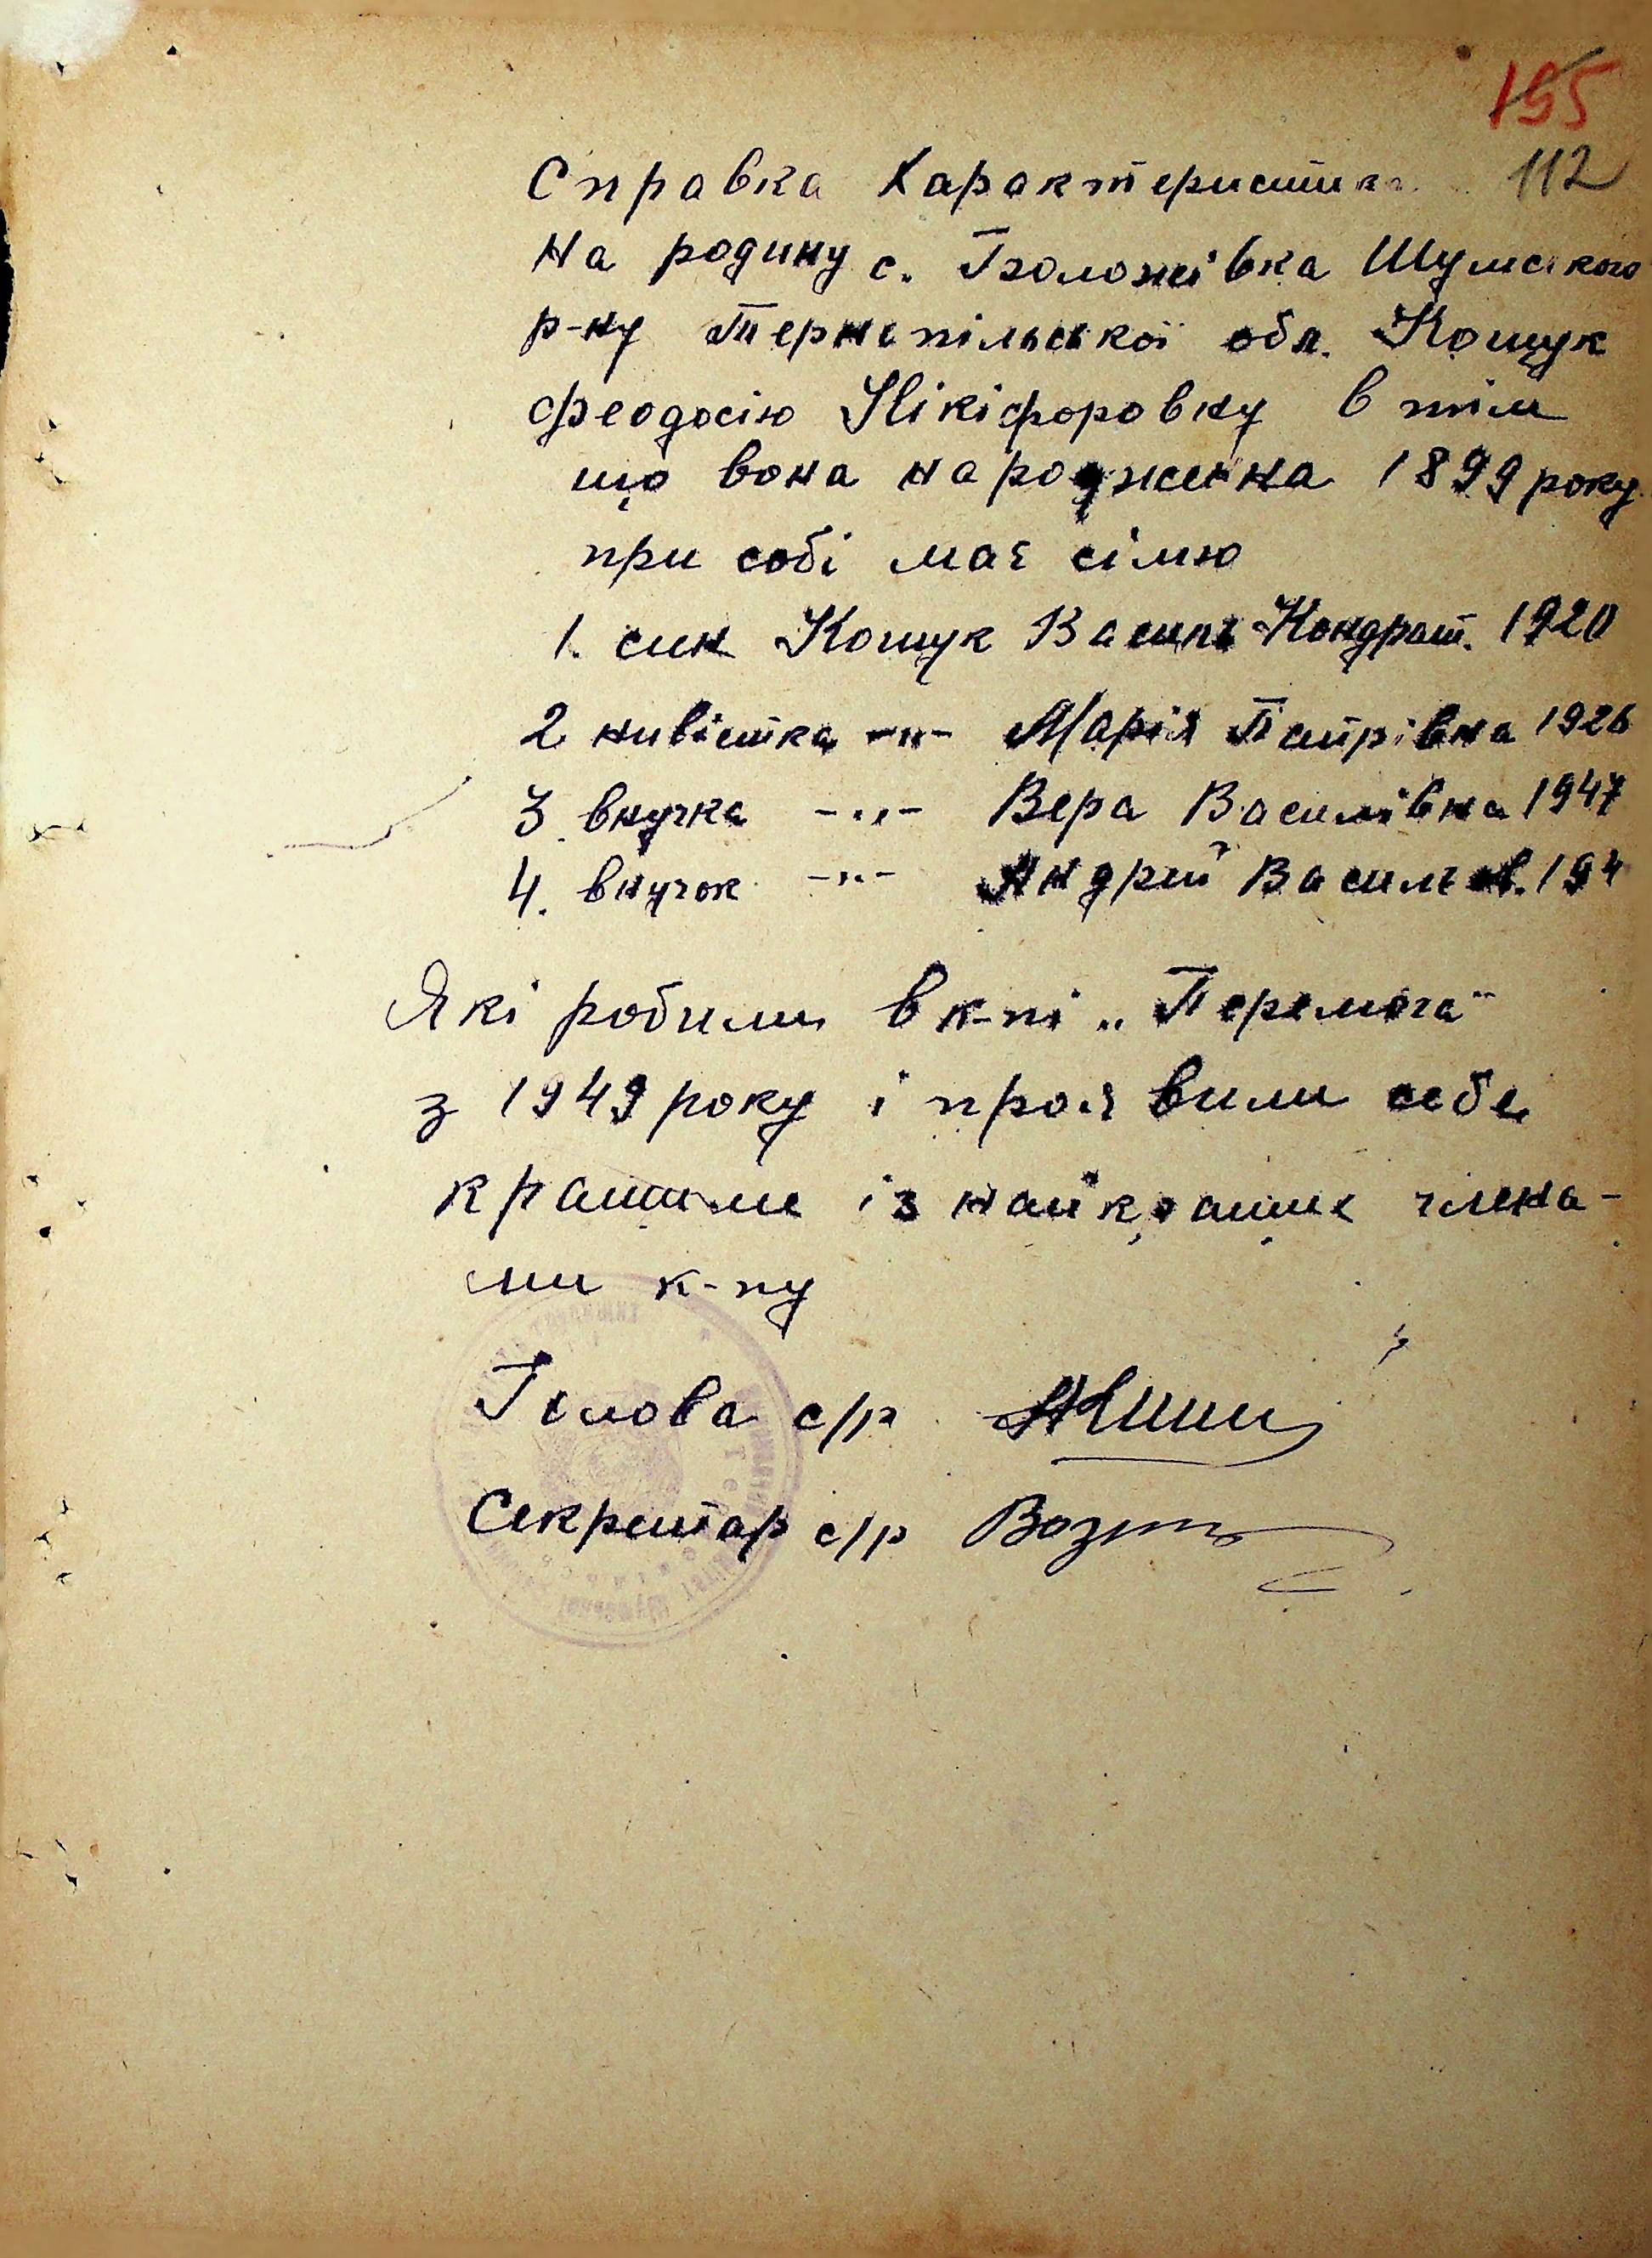 155
112
Справка Характеристика
На родину с. Бзоложівка Шумского
р-ну Тернопільської обл. Кощук
Феодосію Нікіфоровну в тім
що вона народженна 1899 року
при собі має сімю
1. син Кощук Василь Кондрат. 1920
2 нивістка -"- Марія Патрівна 1926
3. внучка -"- Вера Василівна 1947
4. внучок -"- Андрий Васильов. 194
Які робили в к-пі „Перемога"
з 1949 року і проявили себе
кращими із найкращих члена-
ми к-пу
Голова с/р
Секретар с/р